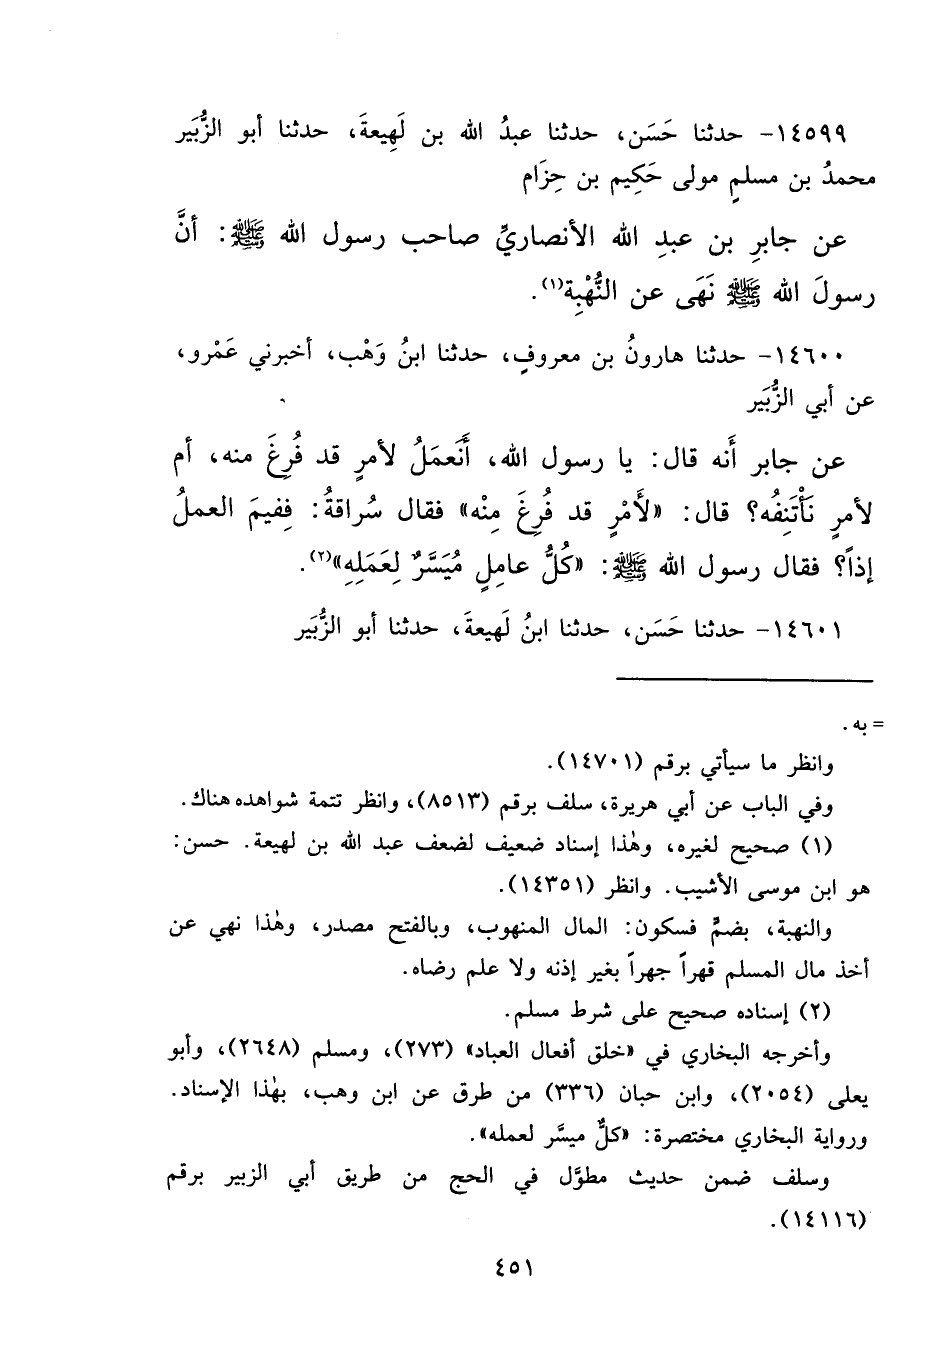 ١٤٥٩٩- حدثنا حَسَن، حدثنا عبدُ الله بن لَهِيعةَ، حدثنا أبو الزُّبَير
محمدُ بن مسلمٍ مولى حَكِيم بن حِزَام
عن جابرِ بن عبدِ الله الأنصاريِّ صاحب رسول الله ﷺ: أنَّ
رسولَ الله ﷺ نَهَى عن النُّهْبِة(١).
١٤٦٠٠- حدثنا هارونُ بن معروفٍ، حدثنا ابنُ وَهْب، أخبرني عَمْرو،
عن أبي الزُّبَير
عن جابر أَنه قال: يا رسول الله، أَنَعمَلُ لأمرٍ قد فُرِغَ منه، أم
لأمرٍ نَأْتَنِفُه؟ قال: «لأَمْرٍ قد فُرِغَ مِنْه» فقال سُراقةُ: فِفيمَ العملُ
إذاً؟ فقال رسول الله ﷺ: «كُلُّ عامِلٍ مُيَسَّرٌ لِعَمَلِهِ»(٢).
١٤٦٠١- حدثنا حَسَن، حدثنا ابنُ لَهِيعةَ، حدثنا أبو الزُّبَير
= به.
وانظر ما سيأتي برقم (١٤٧٠١).
وفي الباب عن أبي هريرة، سلف برقم (٨٥١٣)، وانظر تتمة شواهده هناك.
(١) صحيح لغيره، وهٰذا إسناد ضعيف لضعف عبد الله بن لهيعة. حسن:
هو ابن موسى الأشيب. وانظر (١٤٣٥١).
والنهبة، بضمٍّ فسكون: المال المنهوب، وبالفتح مصدر، وهٰذا نهي عن
أخذ مال المسلم قهراً جهراً بغير إذنه ولا علم رضاه.
(٢) إسناده صحيح على شرط مسلم.
وأخرجه البخاري في «خلق أفعال العباد» (٢٧٣)، ومسلم (٢٦٤٨)، وأبو
يعلى (٢٠٥٤)، وابن حبان (٣٣٦) من طرق عن ابن وهب، بهٰذا الإسناد.
ورواية البخاري مختصرة: «كلٌّ ميسَّر لعمله».
وسلف ضمن حديث مطوَّل في الحج من طريق أبي الزبير برقم
(١٤١١٦).
٤٥١